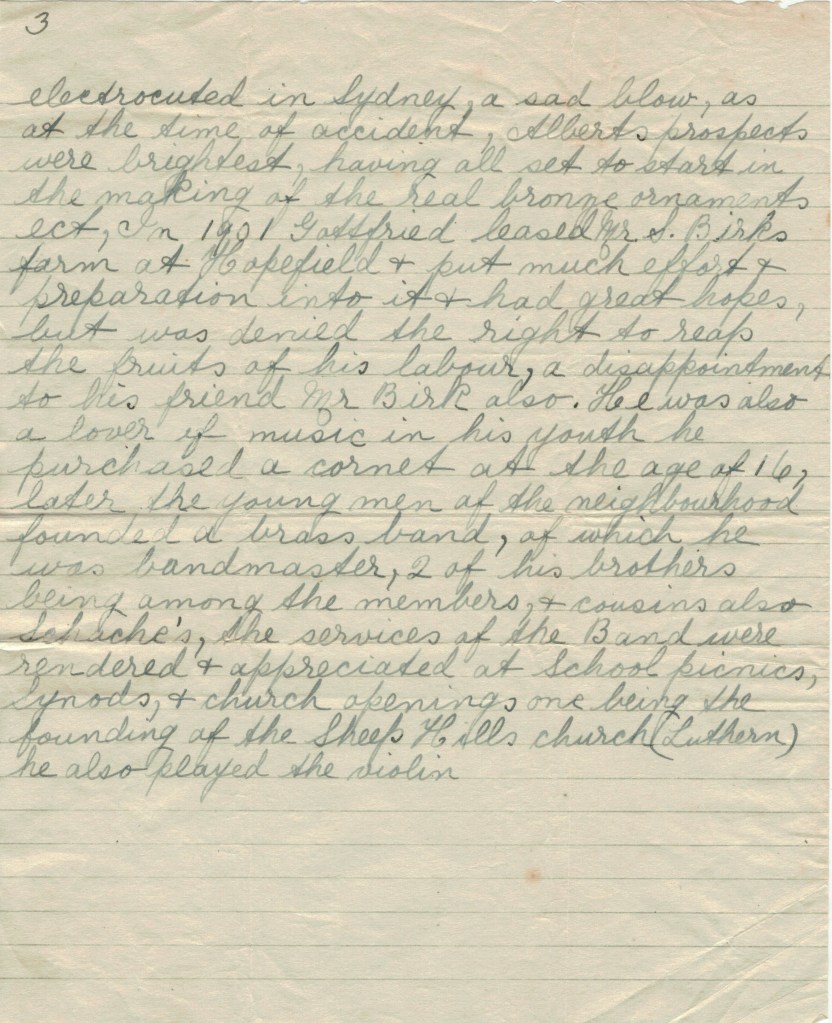 3
electrocuted in Sydney, a sad blow, as
at the time of accident, Alberts prospects
were brightest, having all set to start in
the making of the real bronze ornaments
ect, In 1901 Gottfried leased Mr. S. Birks
farm at Hopefield & put much effort &
preparation into it & had great hopes,
but was denied the right to reap
the fruits of his labour, a disappointment
to his friend Mr Birk also. He was also
a lover of music in his youth he
purchased a cornet at the age of 16,
later the young men of the neighbourhood
founded a brass band, of which he
was bandmaster, 2 of his brothers
being among the members, & cousins also
Schache's, the services of the Band were
rendered & appreciated at School picnics,
Synods, & church openings one being the
founding of the Sheep Hills church (Luthern)
he also played the violin